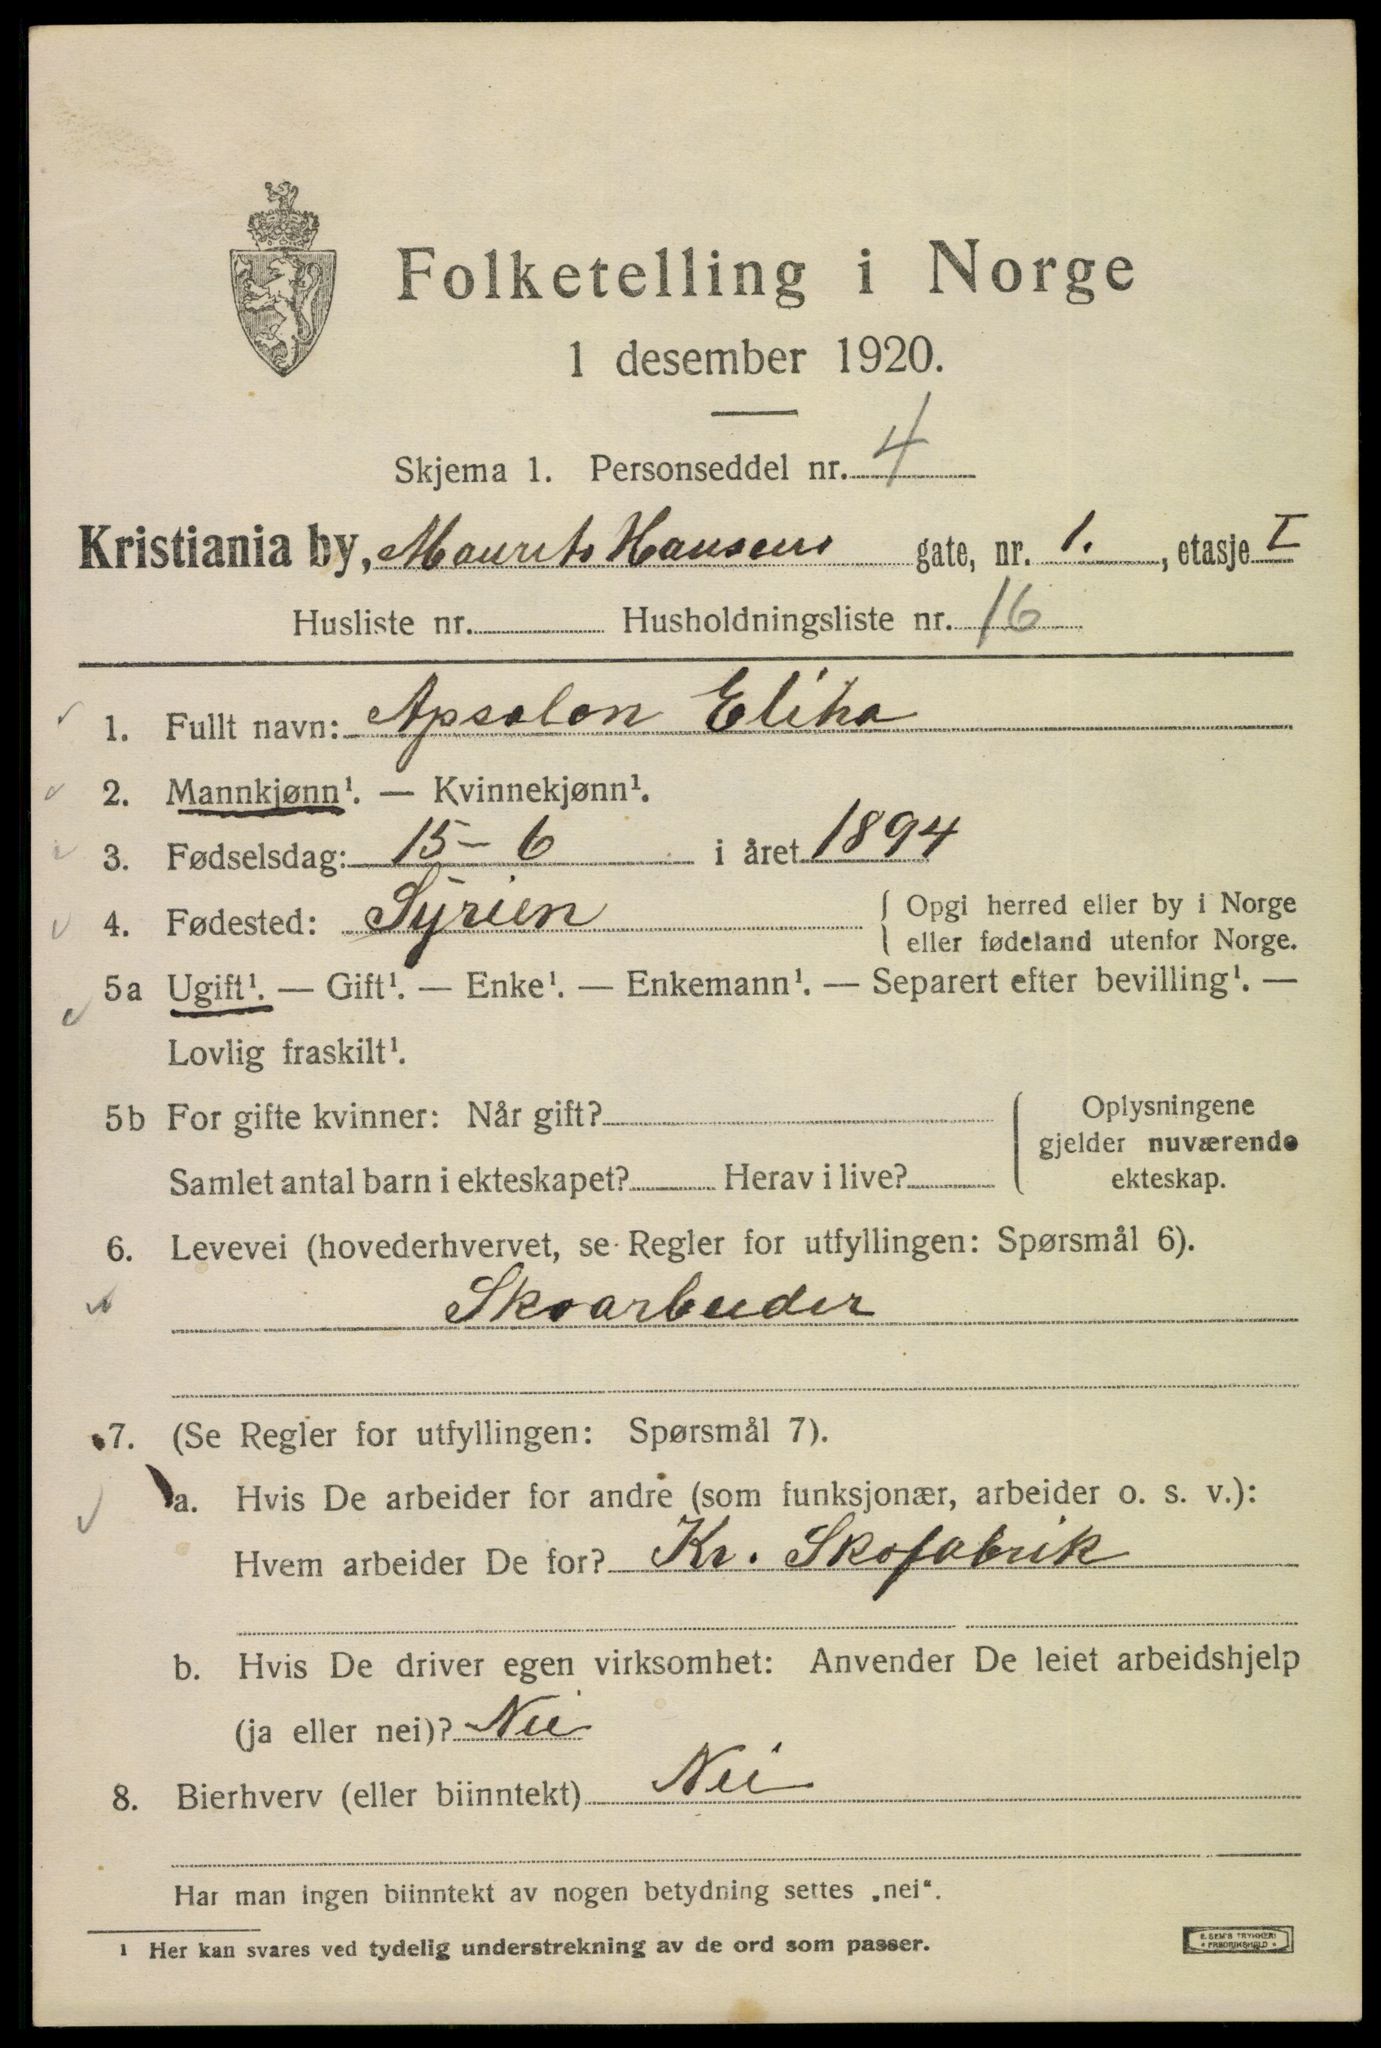 Folketelling i Norge
1 desember 1920.
Skjema 1. Personseddel nr. 4
Kristiania by, Maurits Hansens gate, nr. 1. , etasje I
Husliste nr. Husholdningsliste nr. 16
1. Fullt navn: Apsalon Eliha
2. Mannkjønn¹. — Kvinnekjønn¹.
3. Fødselsdag: 15 - 6 i året 1894
4. Fødested: Syrien { Opgi herred eller by i Norge
eller fødeland utenfor Norge.
5a Ugift¹. — Gift¹. — Enke¹. — Enkemann¹. — Separert efter bevilling¹. —
Lovlig fraskilt¹.
5b For gifte kvinner: Når gift?
Samlet antal barn i ekteskapet? Herav i live?
Oplysningene
gjelder nuværende
ekteskap.
6. Levevei (hovederhvervet, se Regler for utfyllingen: Spørsmål 6).
Skoarbeider
7. (Se Regler for utfyllingen: Spørsmål 7).
a. Hvis De arbeider for andre (som funksjonær, arbeider o. s. v.):
Hvem arbeider De for? Kr. Skofabrik
b. Hvis De driver egen virksomhet: Anvender De leiet arbeidshjelp
(ja eller nei)? Nei
8. Bierhverv (eller biinntekt) Nei
Har man ingen biinntekt av nogen betydning settes „nei“.
¹ Her kan svares ved tydelig understrekning av de ord som passer.
E. SEM'S TRYKKERI
* FREDRIKSHALD *